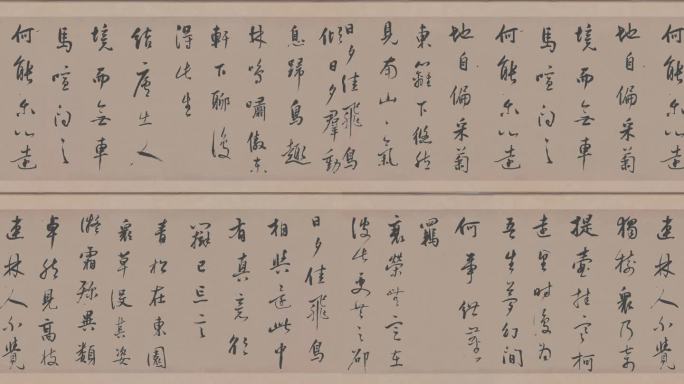 何能尔心遠
地自偏采菊
境而無車
馬喧问之
何能尔心遠
地自偏采菊
東籬下悠然
見南山山氣
日夕佳飛鳥
傾日夕群動
息歸鳥趨
林鳴嘯傲東
軒下聊復
得此生
結廬在人
境而無車
馬喧问之
何能尔心遠
連林人不覺
獨樹眾乃奇
提壺挂寒柯
遠望時復為
吾生夢幻間
何事紲塵
羈
衰榮無定在
彼此更共之邵
日夕佳飛鳥
相與還此中
有真意欲
辯已忘言
青松在東園
眾草沒其姿
凝霜殄異類
卓然見高枝
連林人不覺